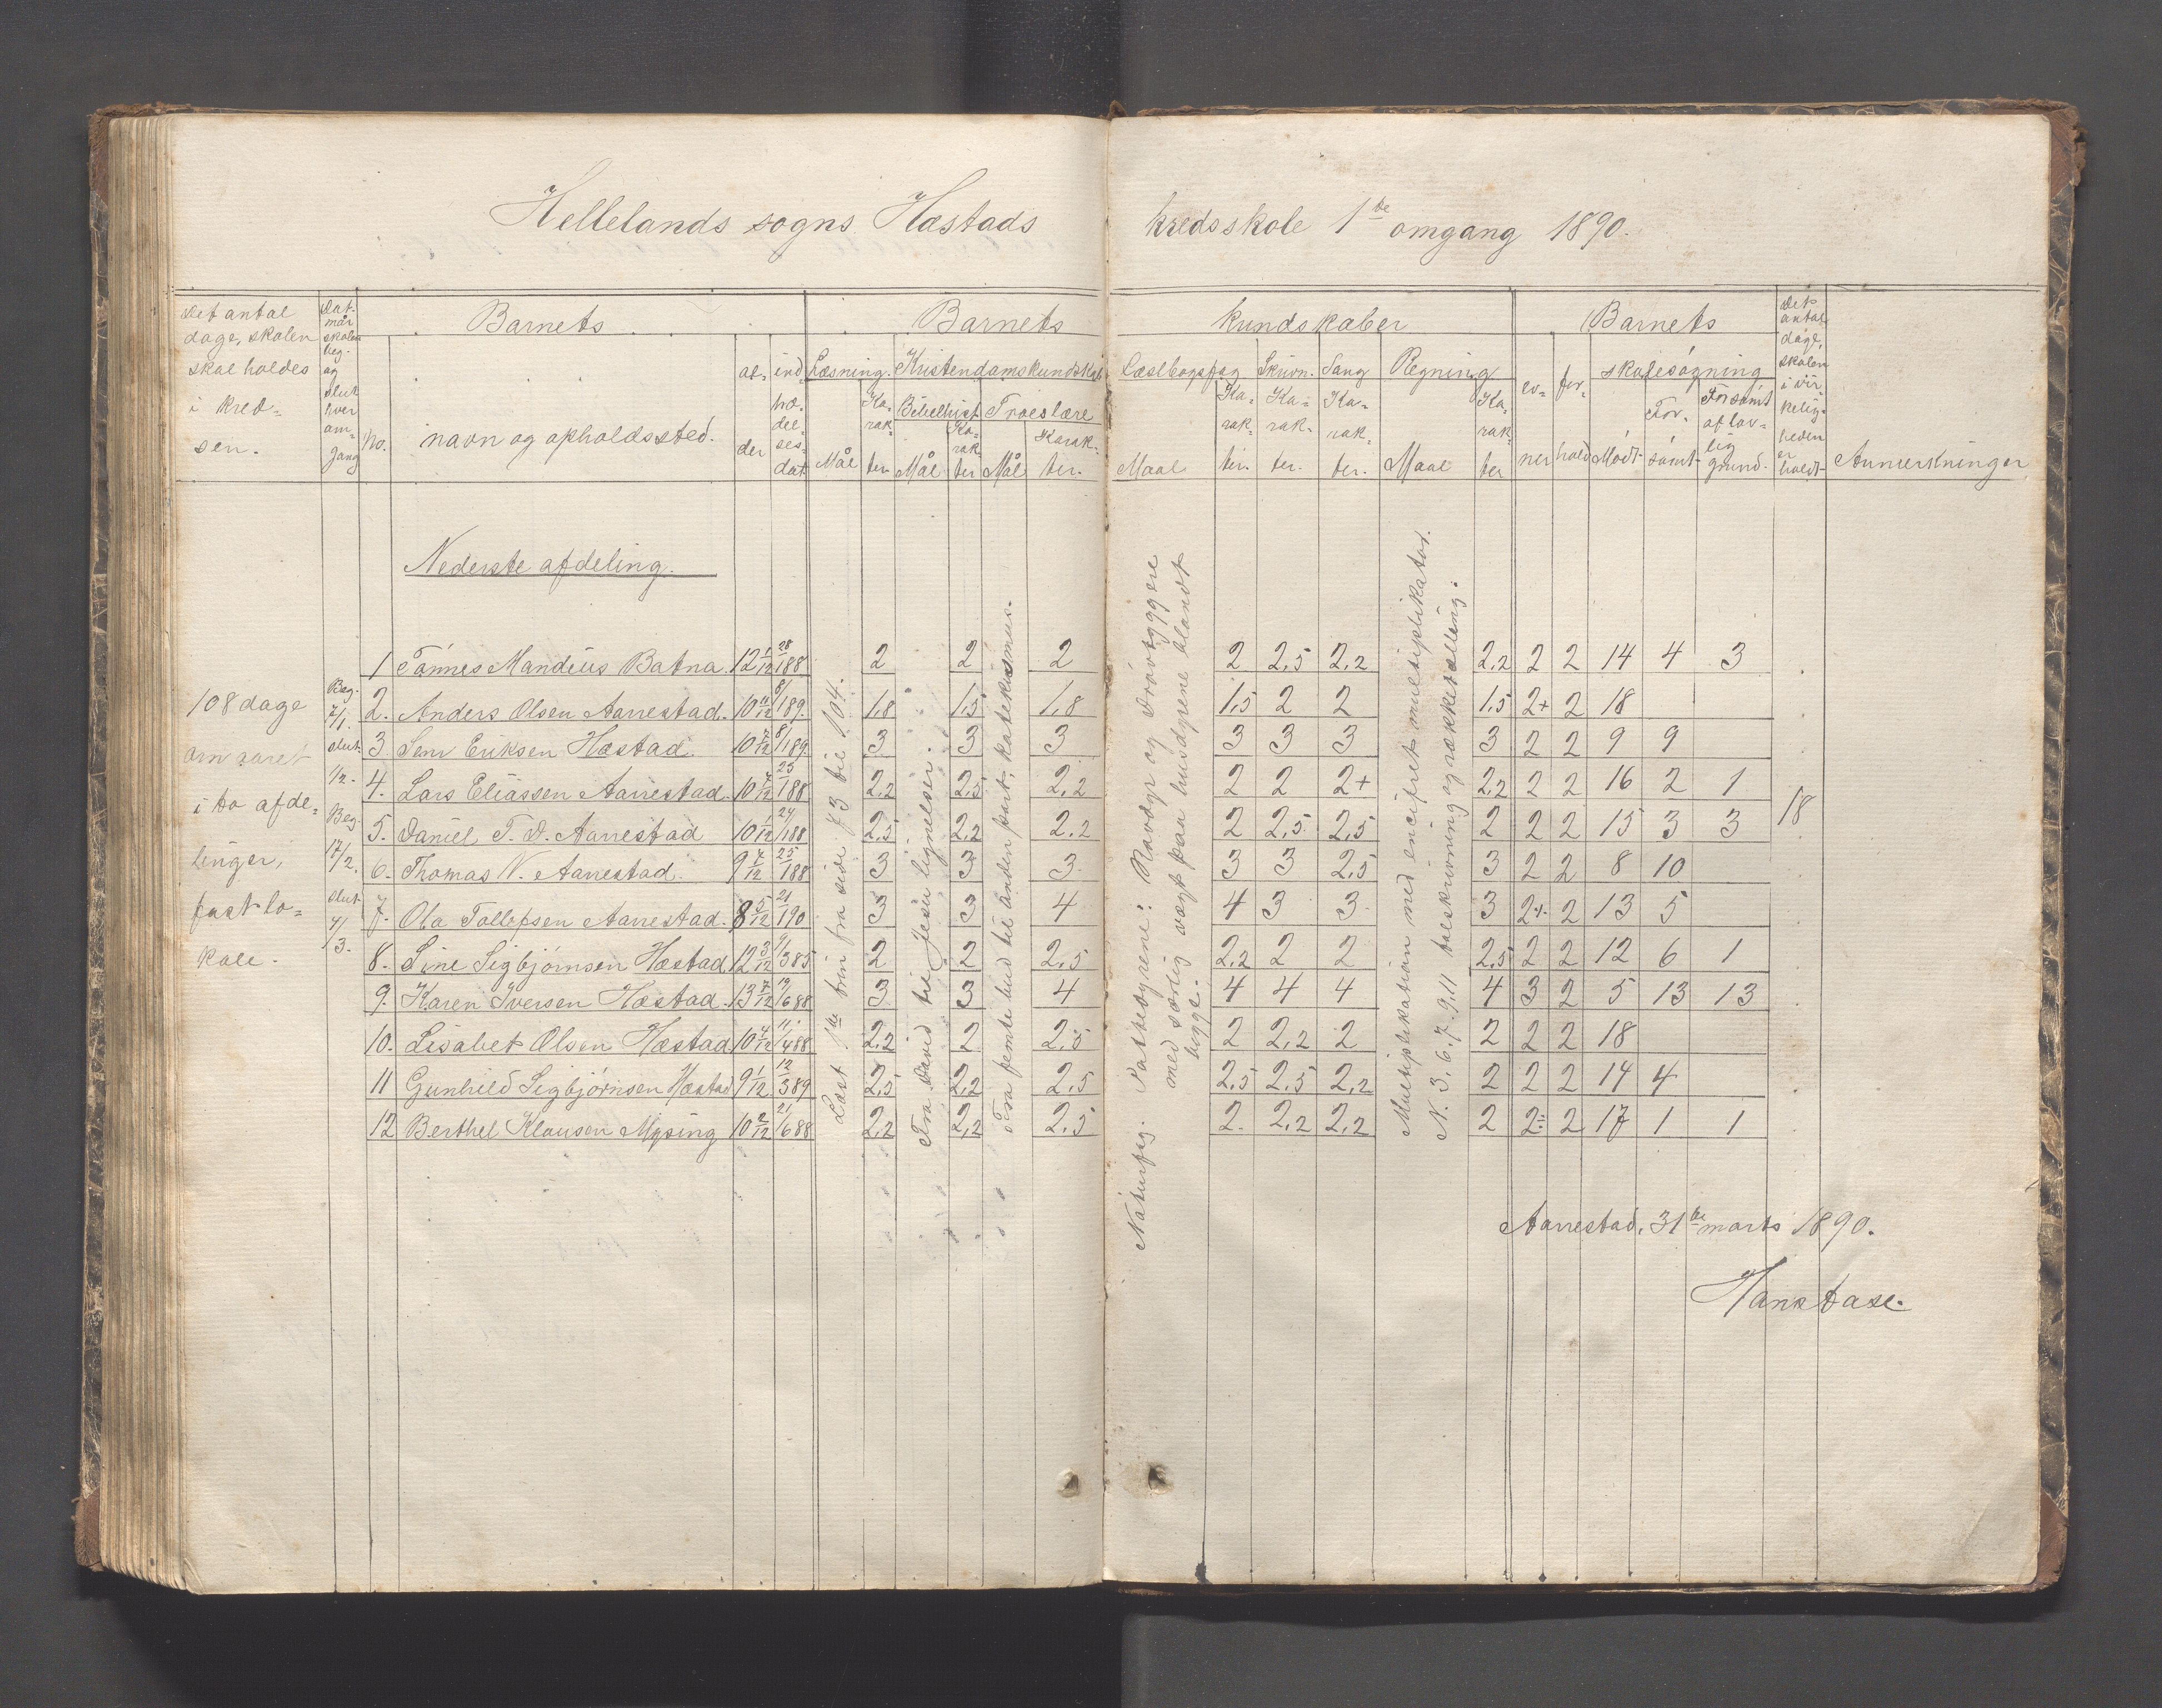 Hellelands sogns Hæstads kredsskole 1ste omgang 1890.
Det antal dage, skolen skal holdes i kredsen.
Barnets
No. navn og opholdssted.
alder
indtrædelsesdat
Barnets kundskaber
Læsning.
Mål
Karakter.
Kristendomskundskab
Bibelhist
Mål
Karakter
Troeslære
Mål
Karakter.
Læsebogsfag
Maal
Karakter.
Skrivn.
Karakter.
Sang
Karakter.
Regning
Maal
Karakter
Barnets
evner
forhold
skolesøgning
Mødt
Forsømt
Forsømt af lovlig grund.
Det antal dage, skolen i virkeligheden er holdt
Anmerkninger
Nederste afdeling.
108 dage om aaret i to afdelinger, fast lokale.
Beg. 7/1. slut 1/2. Beg. 17/2. slut 4/3.
1 Tønnes Mandius Batna. 12 1/12 28/1 88 2 2 2 2 2,5 2,2 2,2 2 2 14 4 3
2. Anders Olsen Aarrestad. 10 11/12 8/1 89. 1,8 1,5 1,8 1,5 2 2 1,5 2+ 2 18
3 Sem Eriksen Hæstad. 10 7/12 8/1 89. 3 3 3 3 3 3 3 2 2 9 9
4. Lars Eliassen Aarrestad. 10 7/12 25/1 88 2,2 2,5 2,2 2 2 2+ 2,2 2 2 16 2 1
5. Daniel T. D. Aarrestad 10 1/12 24/1 88 2,5 2,2 2,2 2 2,5 2,5 2 2 2 15 3 3
6. Thomas N. Aarrestad. 9 7/12 25/1 88 3 3 3 3 3 2,5 3 2 2 8 10
7. Ola Tollefsen Aarrestad. 8 5/12 21/1 90 3 3 4 4 3 3 3 2 2 13 5
8. Sine Sigbjørnsen Hæstad 12 3/12 9/3 85 2 2 2,5 2,2 2 2 2,5 2 2 12 6 1
9. Karen Iversen Hæstad. 13 7/12 19/6 88 3 3 4 4 4 4 4 3 2 5 13 13
10. Lisabet Olsen Hæstad. 10 4/12 11/4 88 2,2 2 2,5 2 2,2 2 2 2 2 18
11 Gunhild Sigbjørnsen Hæstad 9 1/12 12/3 89 2,5 2,2 2,5 2,5 2,5 2,2 2 2 2 14 4
12 Berthel Klausen Mysing 10 2/12 21/6 88 2,2 2,2 2,5 2. 2,2 2,2 2 2 2 17 1 1
18
Læst 1ste trin fra side 73 til 104.
Fra David til Jesu lignelser.
Fra femte bud til anden part, katekismus.
Naturfag. Pattedyrene: Rovdyr og Drøvtyggere
med særlig vægt paa husdyrene blandt
begge.
Multiplikation med encifret multiplikator.
N. 3. 6. 7. 9. 11 talskrivning og rækketælling.
Aarrestad, 31te marts 1890.